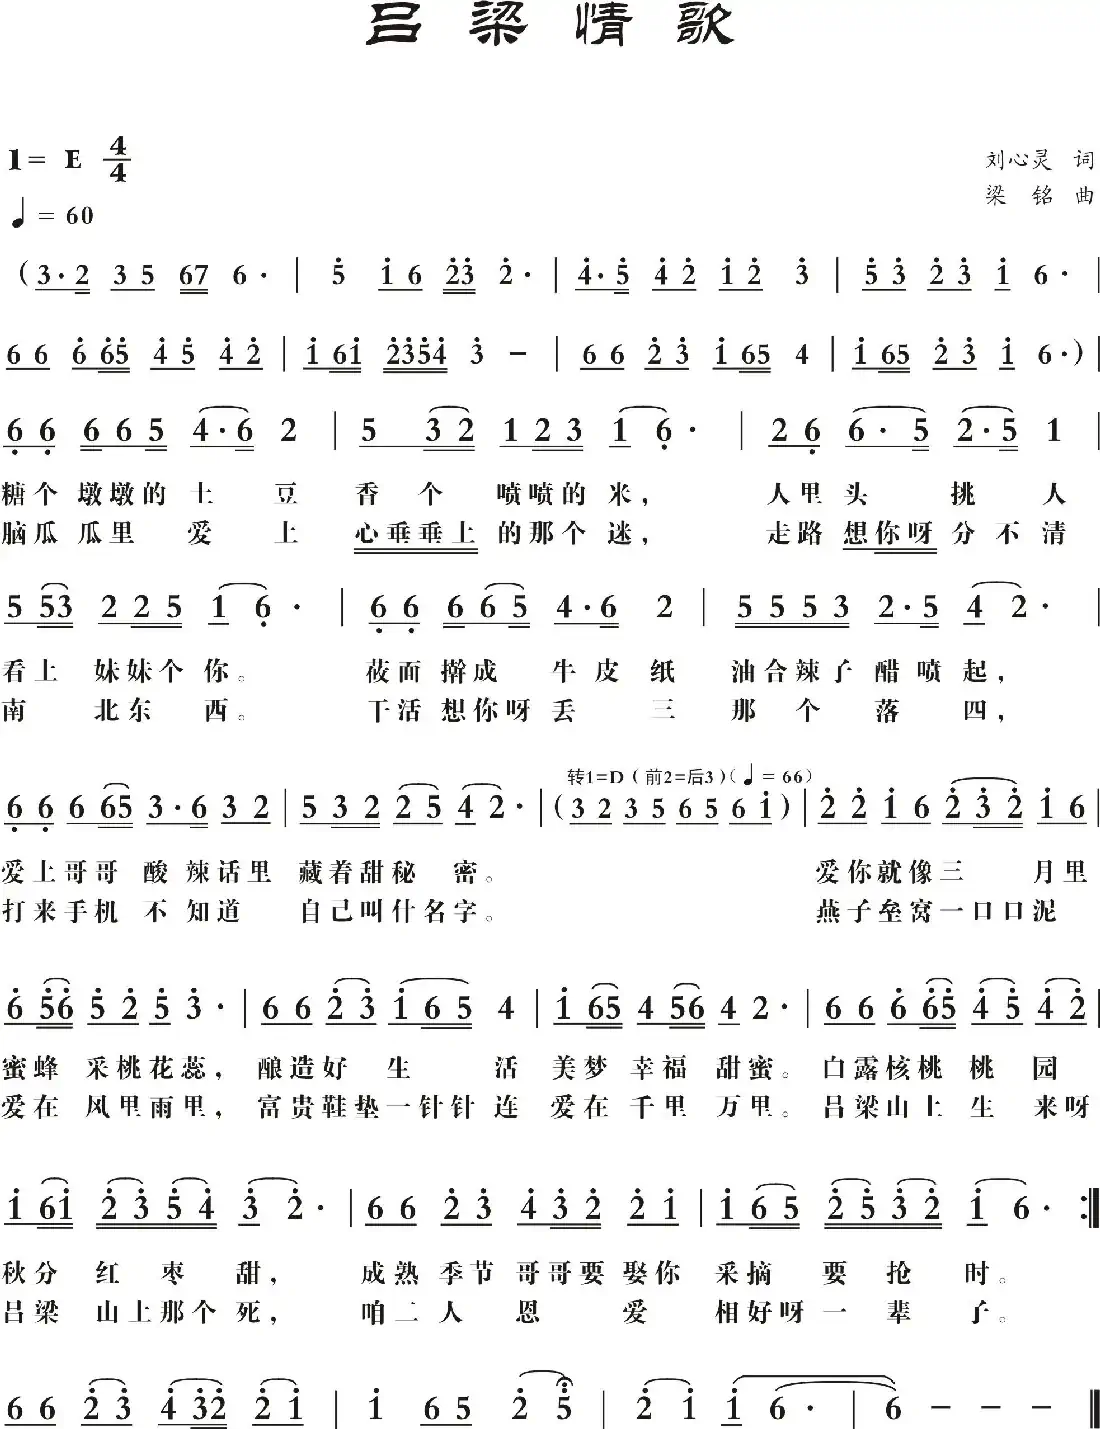 吕梁情歌
1= E 4/4
刘心灵 词
♩= 60
梁 铭 曲
(3·2 35 67 6· | 5 16 23 2· | 4·5 42 12 3 | 53 23 1 6· |
66 665 45 42 | 161 2354 3 – | 66 23 165 4 | 165 23 1 6·) |
66 665 4·6 2 | 5 32 123 1 6· | 26 6·5 2·5 1 |
糖个 墩墩的 土 豆 香 个 喷喷的 米， 人里头 挑 人
脑瓜 瓜里 爱 上 心垂垂上 的那个 迷， 走路 想你呀 分 不 清
5 53 225 1 6· | 66 665 4·6 2 | 5553 2·5 4 2· |
看上 妹妹个 你。 莜面 擀成 牛 皮 纸 油合辣子 醋 喷 起，
南 北东 西。 干活 想你呀 丢 三 那 个 落 四，
转1=D（前2=后3）(♩= 66)
66 665 3·6 32 | 532 25 4 2· | (32 35 65 61) | 22 16 232 16 |
爱上哥哥 酸 辣话里 藏着甜秘 密。 爱你就像三 月里
打来手机 不 知道 自己叫什名字。 燕子垒窝一口口泥
6 56 52 5 3· | 66 23 165 4 | 165 456 4 2· | 66 665 45 42 |
蜜蜂 采桃花蕊， 酿造好 生 活 美梦 幸福 甜蜜。白露核桃 桃 园
爱在 风里雨里， 富贵鞋垫一针针 连 爱在 千里 万里。吕梁山上 生 来呀
161 2354 3 2· | 66 23 432 21 | 165 2532 1 6· :|
秋分 红 枣 甜， 成熟 季节 哥哥要 娶你 采摘 要 抢 时。
吕梁 山上那个 死， 咱二人 恩 爱 相好呀一 辈 子。
66 23 432 21 | 1 65 2 5 | 2 1 1 6· | 6 – – – ‖